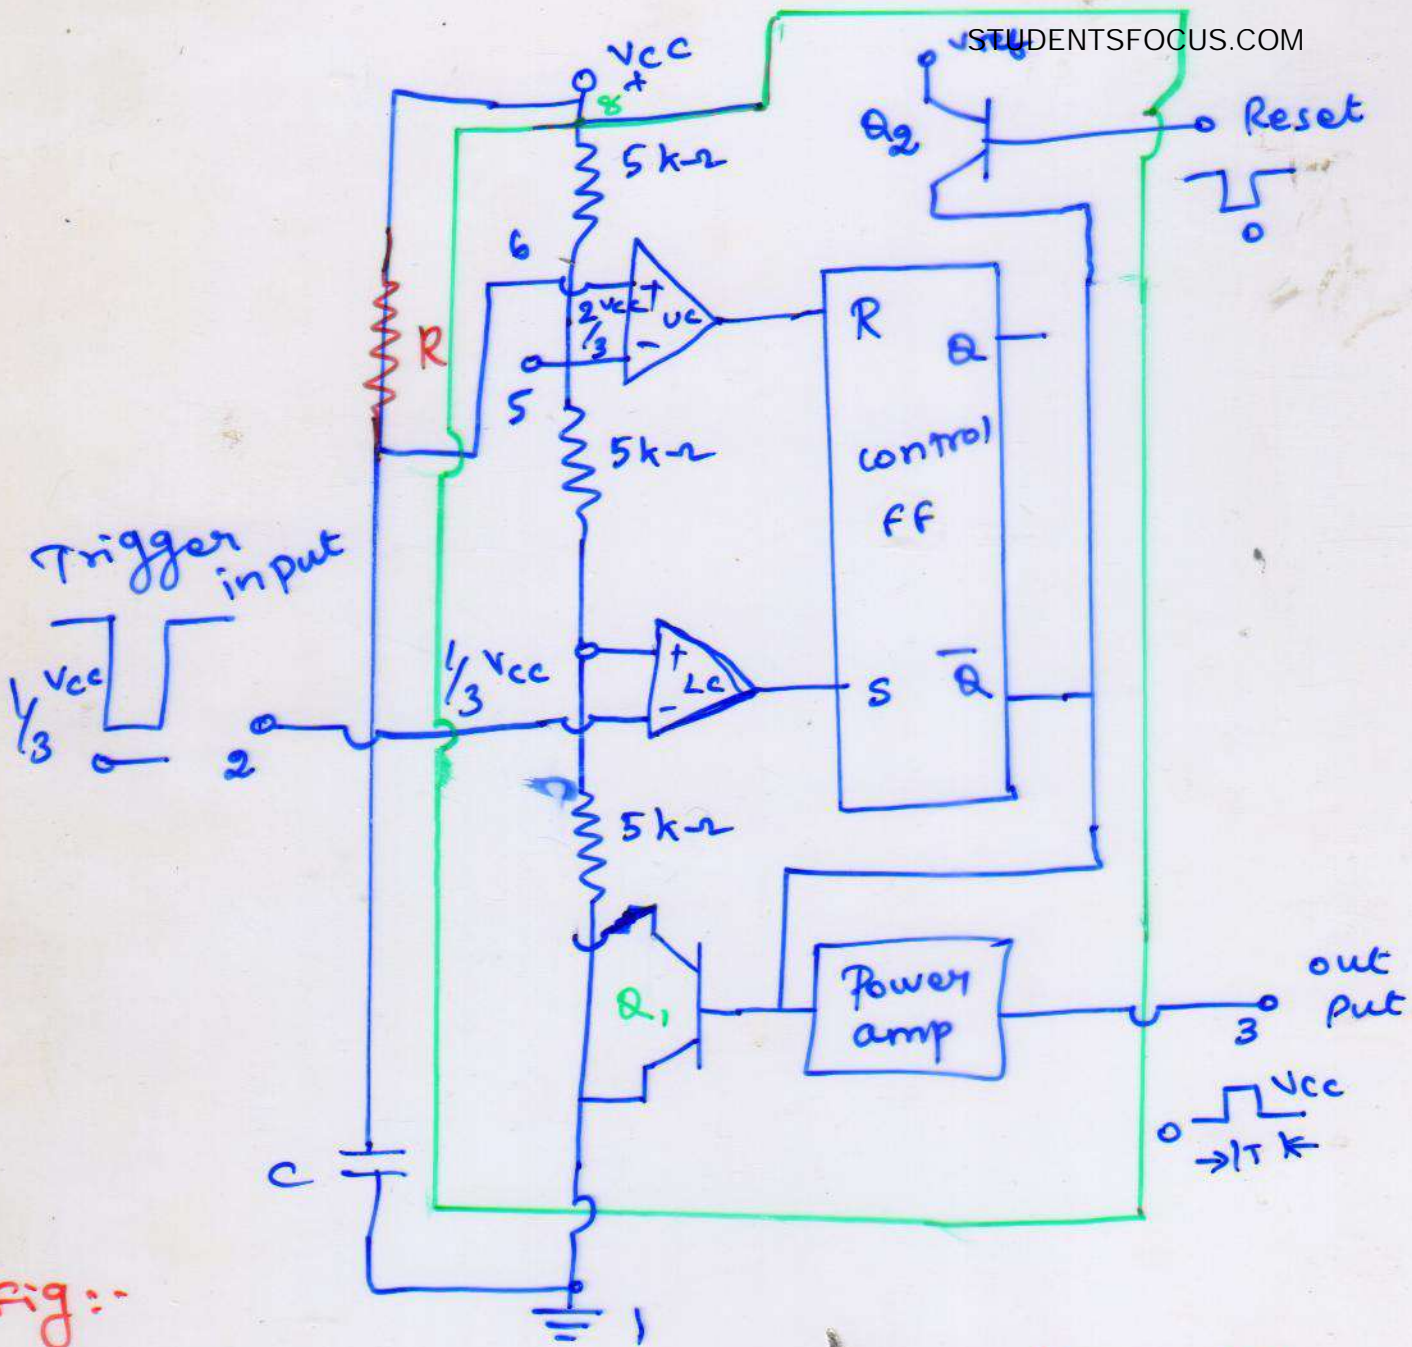 STUDENTSFOCUS.COM
Vcc
+
8
Vref
Q2
Reset
0
5kΩ
6
2/3 Vcc
+
UC
-
5
R
R
Q
control
FF
5kΩ
Trigger
input
1/3 Vcc
2
1/3 Vcc
+
LC
-
S
Q̅
5kΩ
Q1
Power
amp
out
put
3
Vcc
0
T
C
1
Fig:-